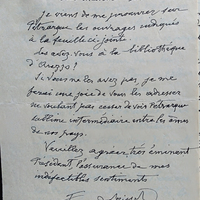 je viens de me procurer sur
Pétrarque les ouvrages indiqués
à la feuille ci-jointe.
Les avez vous à la bibliothèque
d'Arezzo ?
Si vous ne les avez pas, je me
ferai une joie de vous les adresser
ne voulant pas cesser de voir Pétrarque
sublime intermédiaire entre les âmes
de nos pays.
Veuillez agréer, très éminent
Président, l'assurance de mes
indéfectibles sentiments